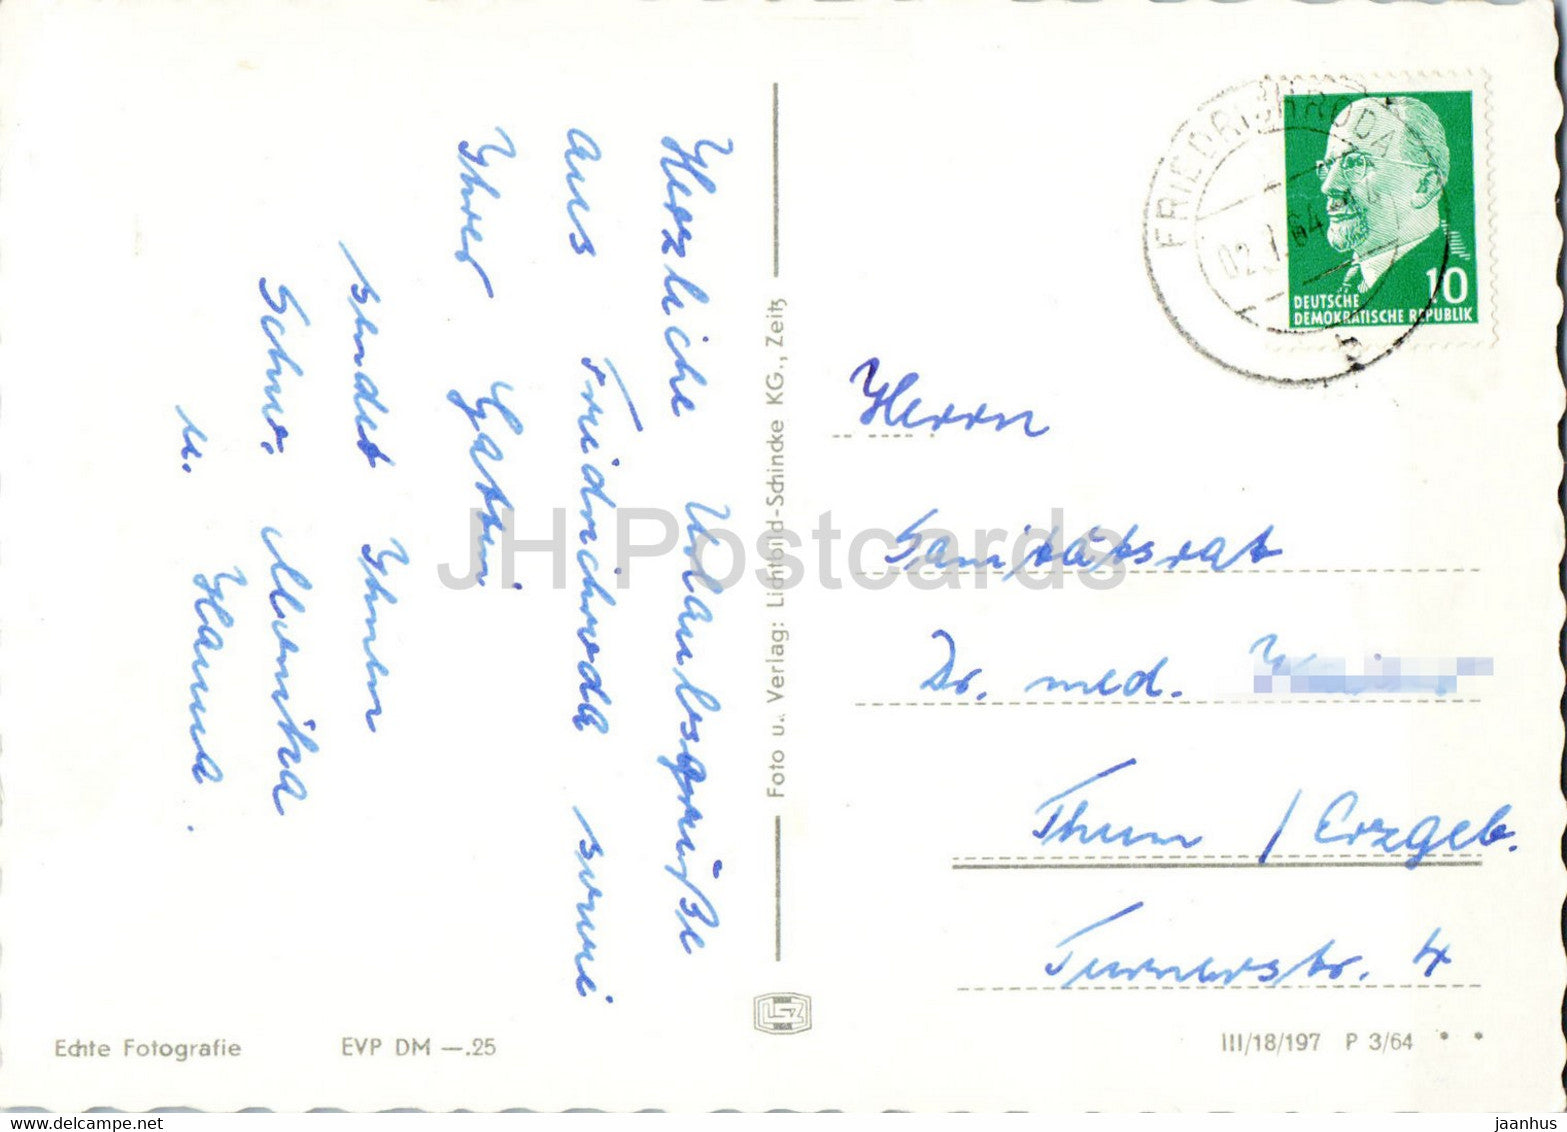 Herzliche Urlaubsgrüße
aus Friedrichroda sowie
Ihrer Gattin
sendet Ihnen
Schw. Monika
u. Hanna.
Foto u. Verlag: Lichtbild-Schincke KG., Zeitz
FRIEDRICHRODA
64
10
DEUTSCHE
DEMOKRATISCHE REPUBLIK
Herrn
Sanitätsrat
Dr. med.
Thum / Erzgeb.
Turnerstr. 4
Echte Fotografie EVP DM —.25
III/18/197 P 3/64
JH Postcards
delcampe.net
jaanhus